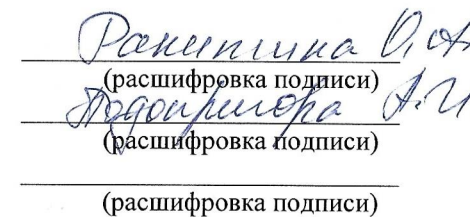 Ракитина О.А.
(расшифровка подписи)
Подопригора А.И
(расшифровка подписи)
(расшифровка подписи)